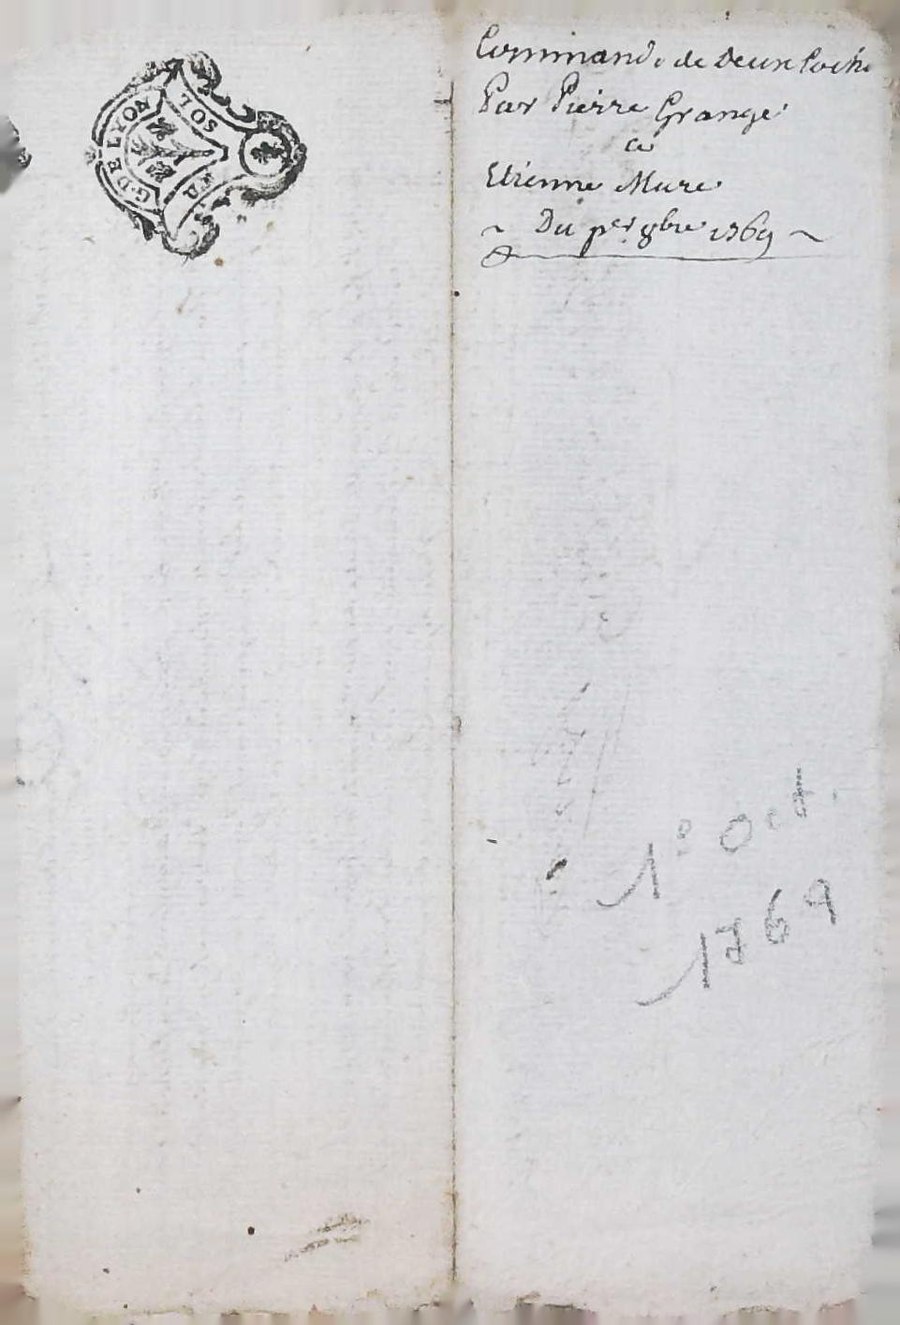 G. DE LYON
UN SOL
Command. de Deux
Par Pierre Grange
a
Etienne Mure
~ Du per 8bre 1769 ~
1º Oct.
1769